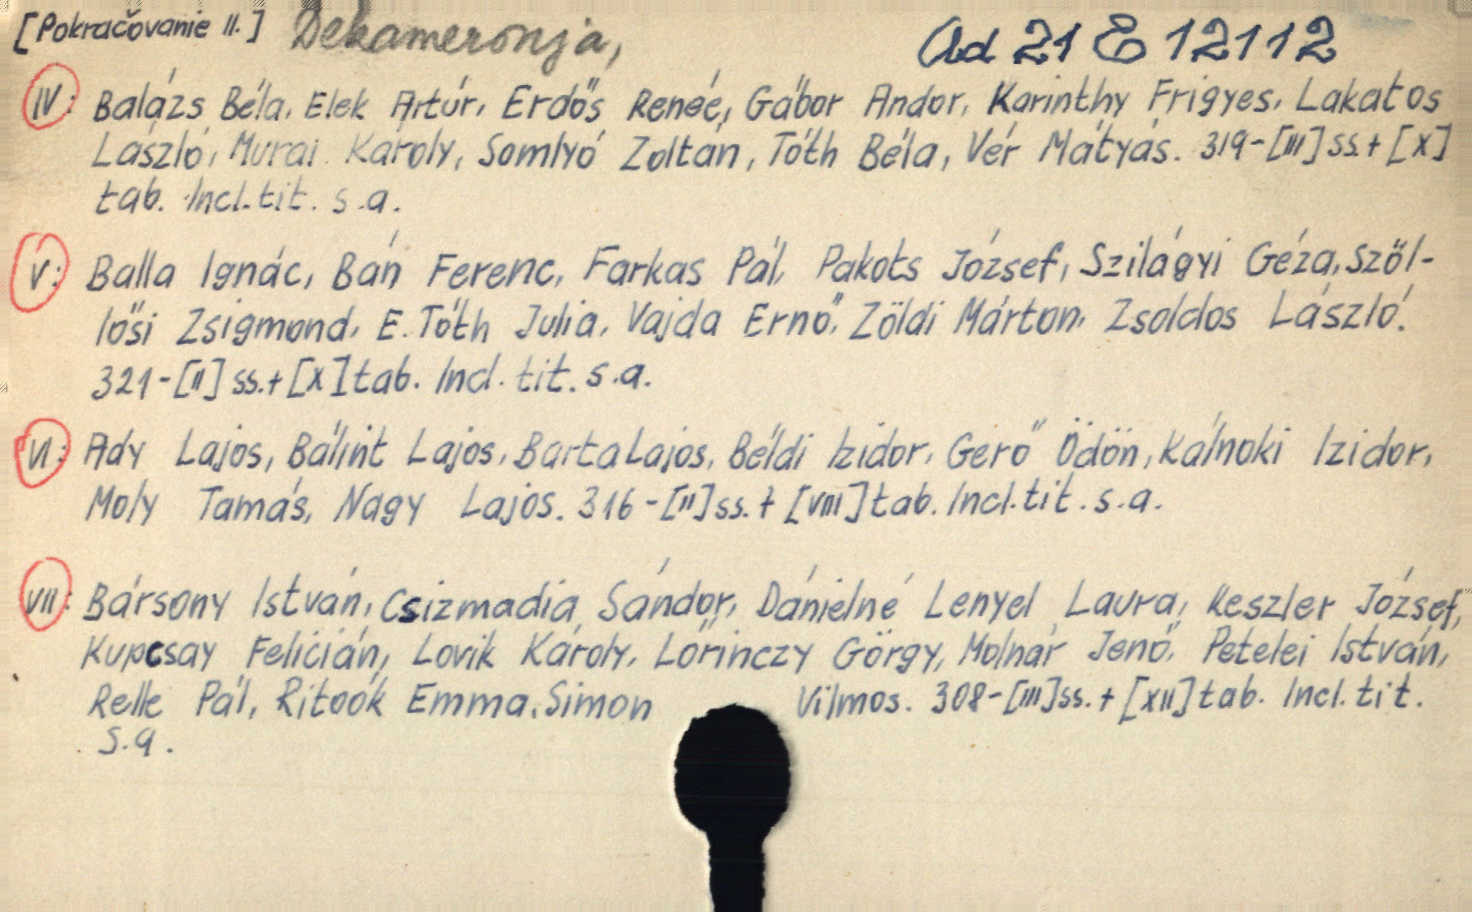 [Pokračovanie II.] Dekameronja, Ad 21 E 12112
IV: Balázs Béla, Elek Artúr, Erdős Reneé, Gábor Andor, Karinthy Frigyes, Lakatos
László, Murai Károly, Somlyó Zoltán, Tóth Béla, Vér Mátyás. 319-[III] ss.+[X]
tab. Incl.tit. s.a.
V: Balla Ignác, Bán Ferenc, Farkas Pál, Pakots József, Szilágyi Géza, Szöl-
lősi Zsigmond, E. Tóth Julia, Vajda Ernő, Zöldi Márton, Zsoldos László.
321-[II] ss.+[X] tab. Incl. tit. s.a.
VI: Ady Lajos, Bálint Lajos, Barta Lajos, Béldi Izidor, Gerő Ödön, Kálnoki Izidor,
Moly Tamás, Nagy Lajos. 316-[II] ss.+[VIII] tab. Incl.tit. s.a.
VII: Bársony István, Csizmadia Sándor, Dánielné Lenyel Laura, Keszler József,
Kupcsay Felicián, Lovik Károly, Lőrinczy Görgy, Molnár Jenő, Petelei István,
Relle Pál, Ritoók Emma, Simon Vilmos. 308-[III] ss.+[XII] tab. Incl. tit.
s.a.